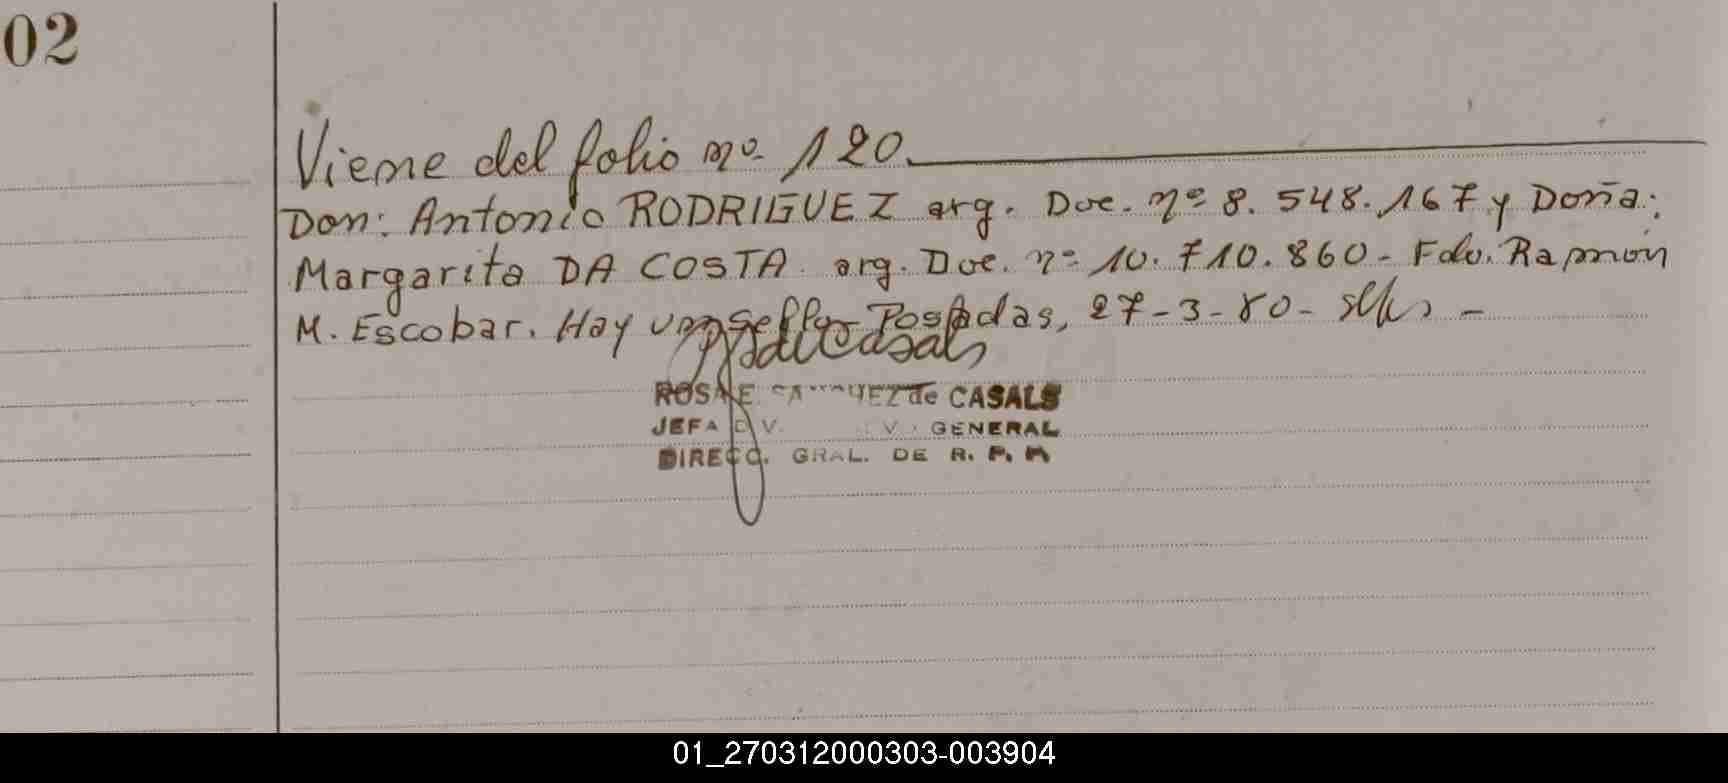 02
Viene del folio nº 120.
Don: Antonio RODRIGUEZ arg. Doc. nº 8.548.167 y Doña:
Margarita DA COSTA. arg. Doc. nº 10.710.860 - Fdo. Ramón
M. Escobar. Hay un sello - Posadas, 27-3-80 -
ROSA E. de CASALS
JEFA GENERAL
DIRECC. GRAL. DE R. P. P.
01_270312000303-003904